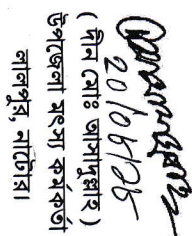 ( দীন মোঃ আসাদুল্লাহ )
উপজেলা মৎস্য কর্মকর্তা
লালপুর, নাটোর।